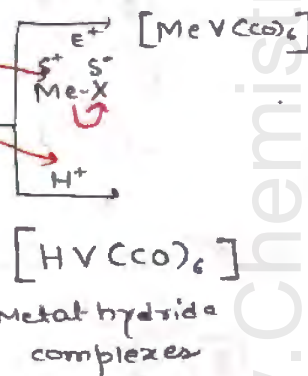 E⁺ [MeV(CO)₆]
δ⁺ δ⁻
Me-X
H⁺
[HV(CO)₆]
Metal hydride
complexes
. Chemist